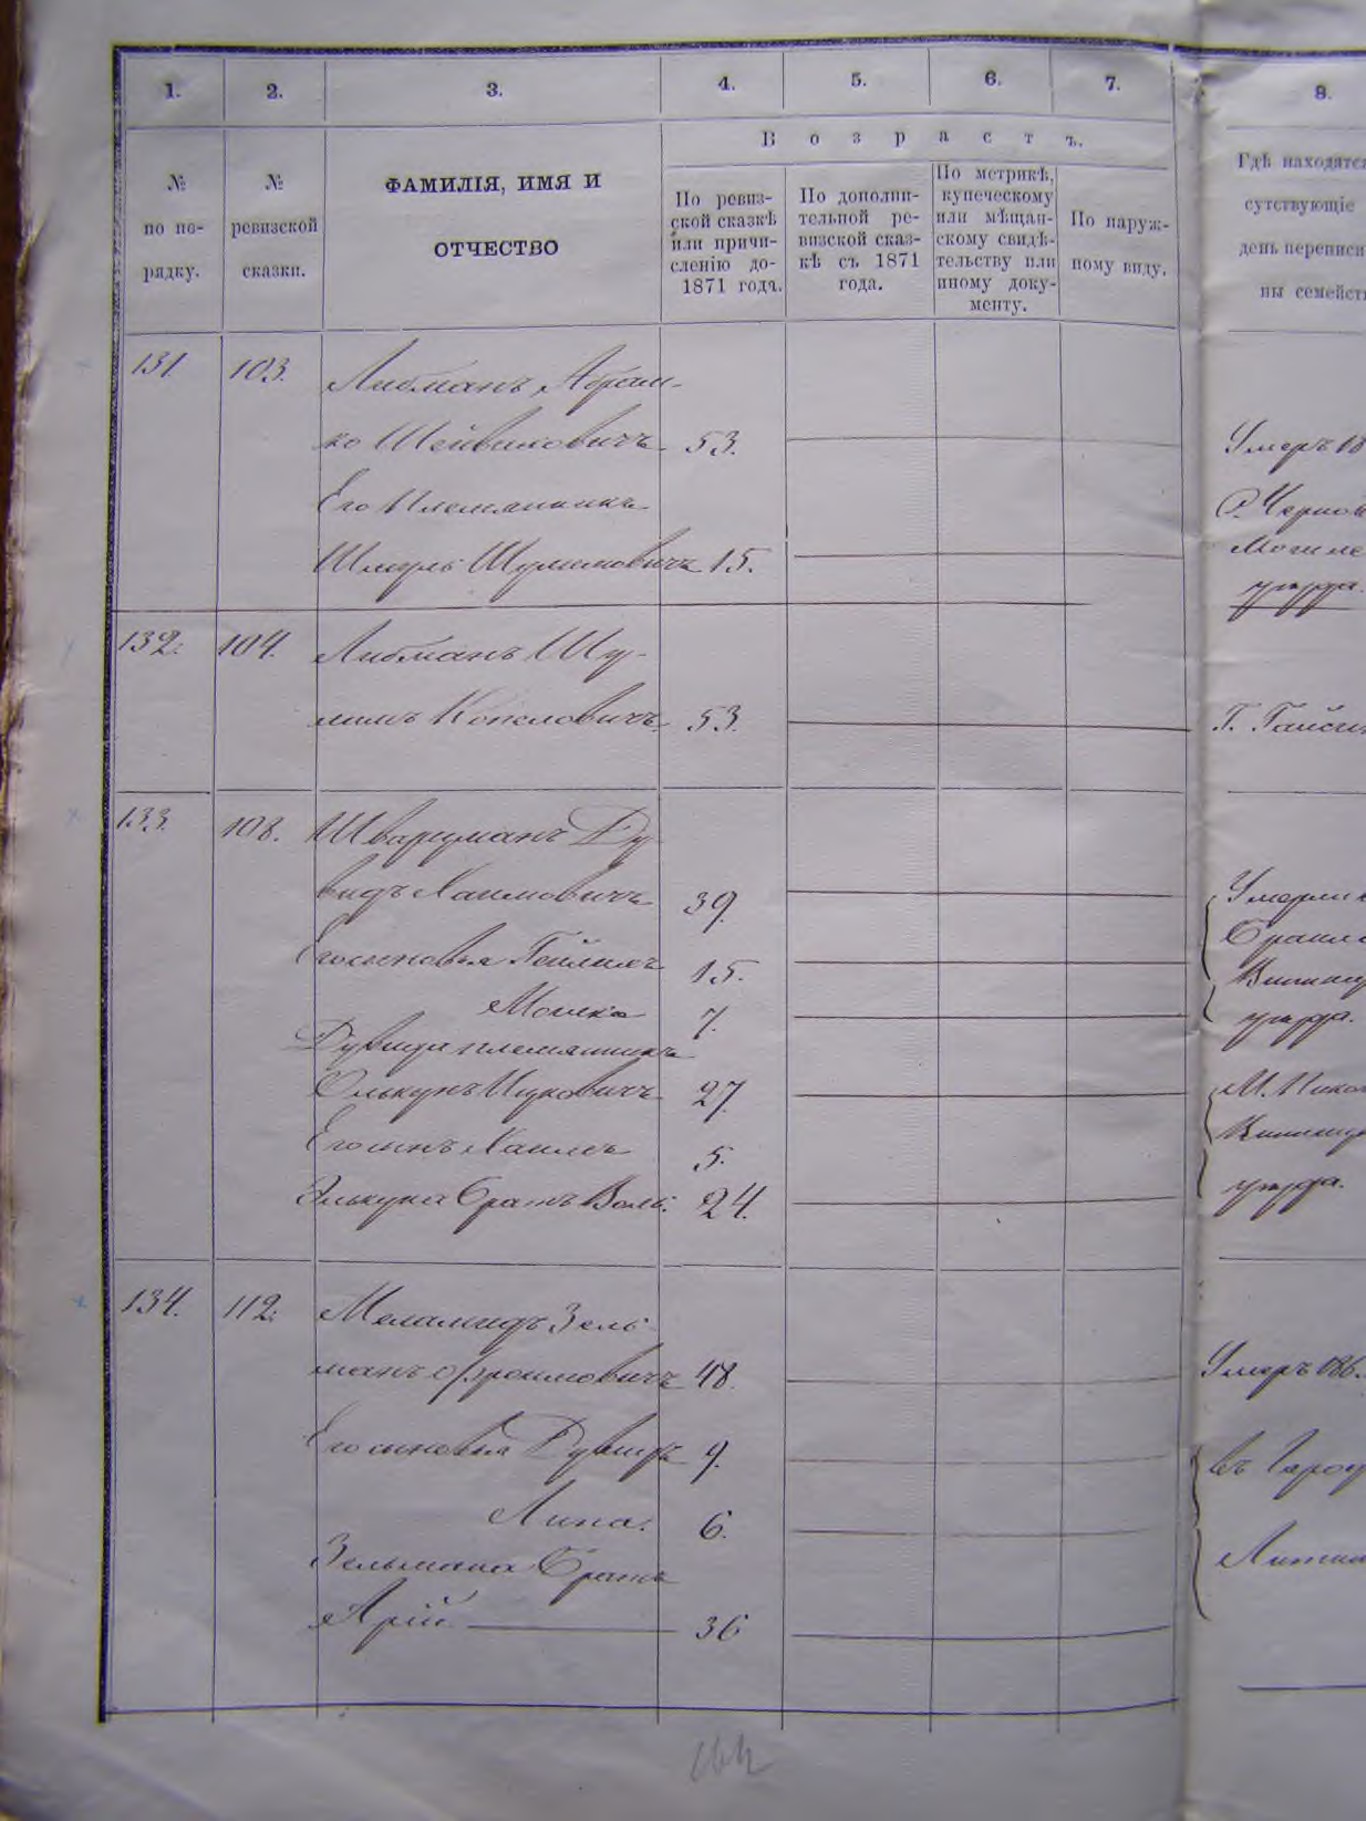 1. 2. 3. 4. 5. 6. 7. 8.
Возрастъ.
№ по порядку.
№ ревизской сказки.
ФАМИЛІЯ, ИМЯ И
ОТЧЕСТВО
По ревиз-
ской сказкѣ
или причи-
сленію до-
1871 года.
По дополни-
тельной ре-
визской сказ-
кѣ съ 1871
года.
По метрикѣ,
купеческому
или мѣщан-
скому свидѣ-
тельству или
иному доку-
менту.
По наруж-
ному виду.
Гдѣ находятся
сутствующіе
день переписи
ны семейст
131. 103. Либманъ Абрам-
ко Шейвиховичъ 53. Умеръ 18
Его Племянникъ Р. Чернов
Шмуль Шулимовичъ 15. Могиле
уѣзда.
132. 104. Либманъ Шу-
лимъ Копеловичъ 53. Г. Гайси
133. 108. Шварцманъ Ду-
видъ Хаимовичъ 39. Умерли
Его сыновья Гейлихъ 15. Браило
Мошко 7. Винниц
Дувида племянникъ уѣзда.
Элькунъ Ицковичъ 27. М. Никол
Его сынъ Хаимъ 5. Винниц
Элькуна Братъ Воль. 24. уѣзда.
134. 112. Меламидъ Зель-
манъ Офроимовичъ 48. Умеръ 186
Его сыновья Дувидъ 9. въ Город
Липа. 6.
Зельмана Братъ Литин
Арій 36